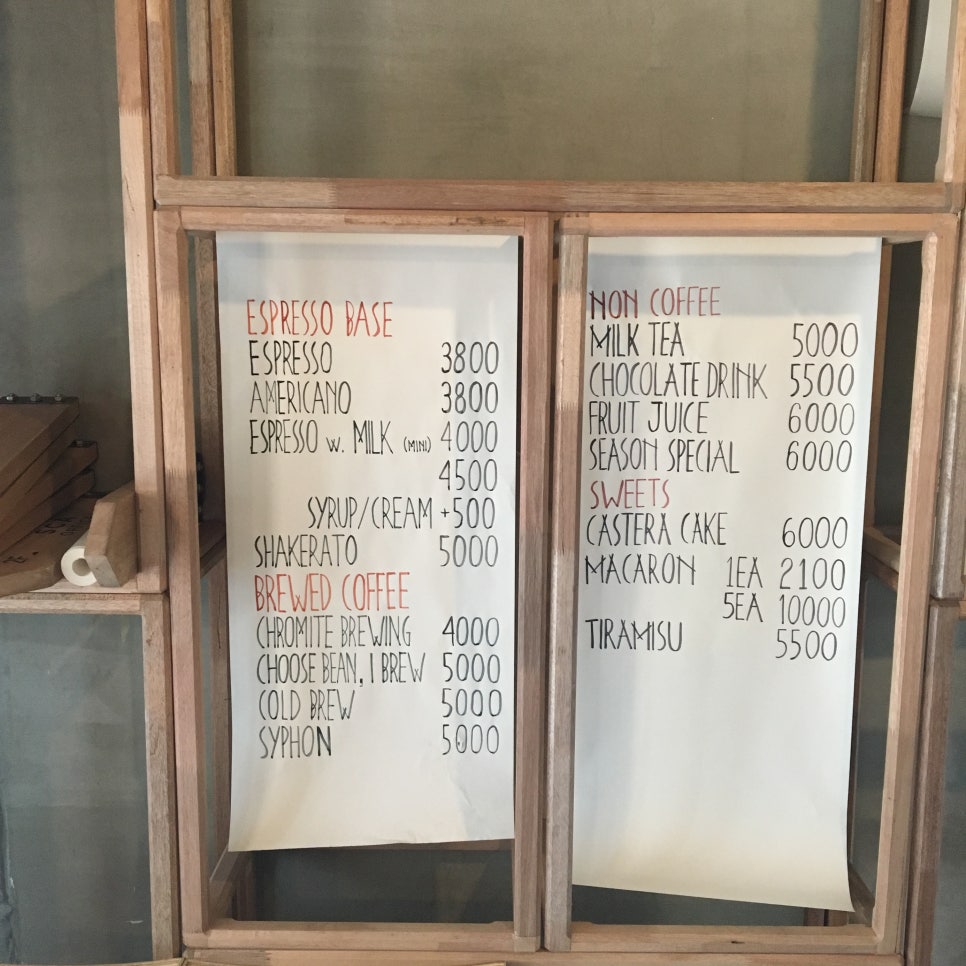 ESPRESSO BASE
ESPRESSO 3800
AMERICANO 3800
ESPRESSO w. MILK (MINI) 4000
4500
SYRUP/CREAM +500
SHAKERATO 5000
BREWED COFFEE
CHROMITE BREWING 4000
CHOOSE BEAN, I BREW 5000
COLD BREW 5000
SYPHON 5000
NON COFFEE
MILK TEA 5000
CHOCOLATE DRINK 5500
FRUIT JUICE 6000
SEASON SPECIAL 6000
SWEETS
CASTERA CAKE 6000
MACARON 1EA 2100
5EA 10000
TIRAMISU 5500